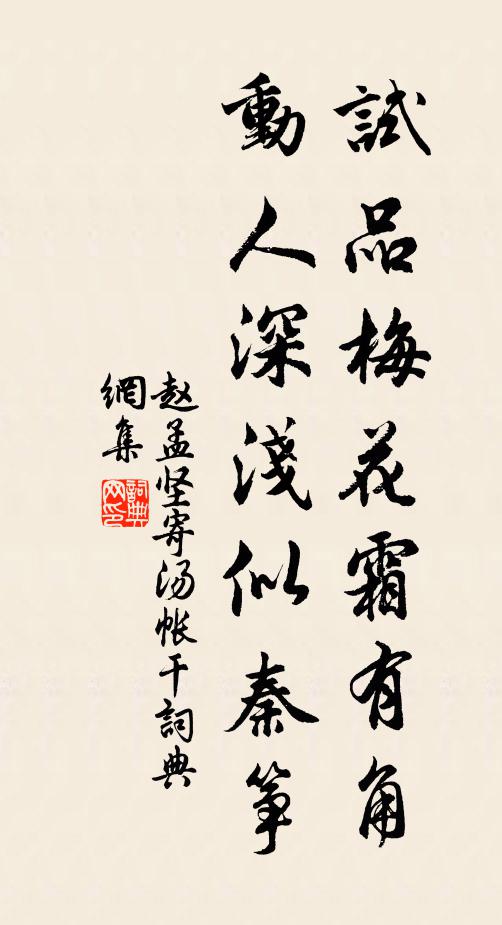 試品梅花霜有角
動人深淺似秦箏
赵孟坚寄汤帐干詞典
網集
詞典
网印